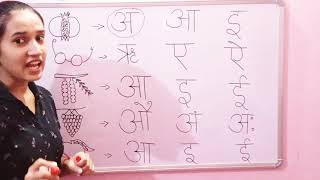 अ आ इ
ऋ ए ऐ
आ इ ई
औ अं अः
आ इ ई